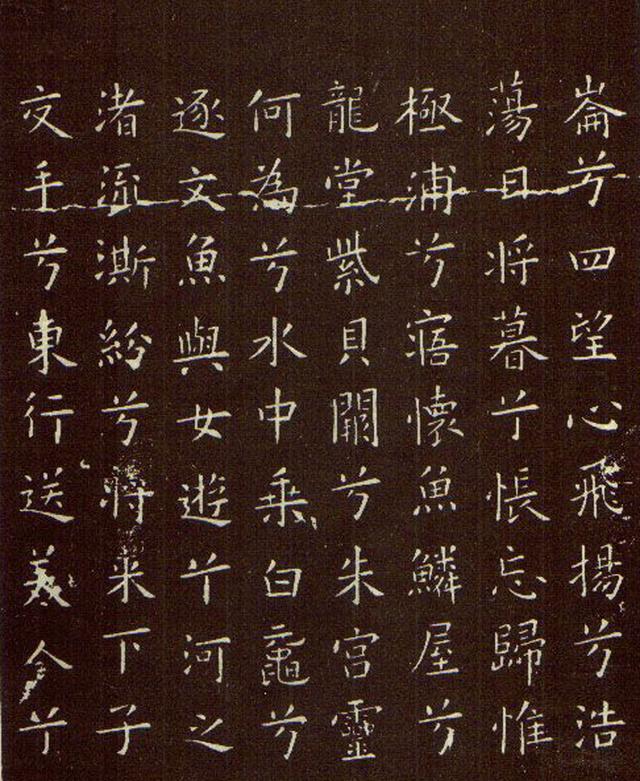 崙兮四望心飛揚兮浩
蕩日将暮兮悵忘歸惟
極浦兮寤懷魚鱗屋兮
龍堂紫貝闕兮朱宮靈
何為兮水中乘白黿兮
逐文魚與女遊兮河之
渚流澌紛兮將来下子
交手兮東行送美人兮